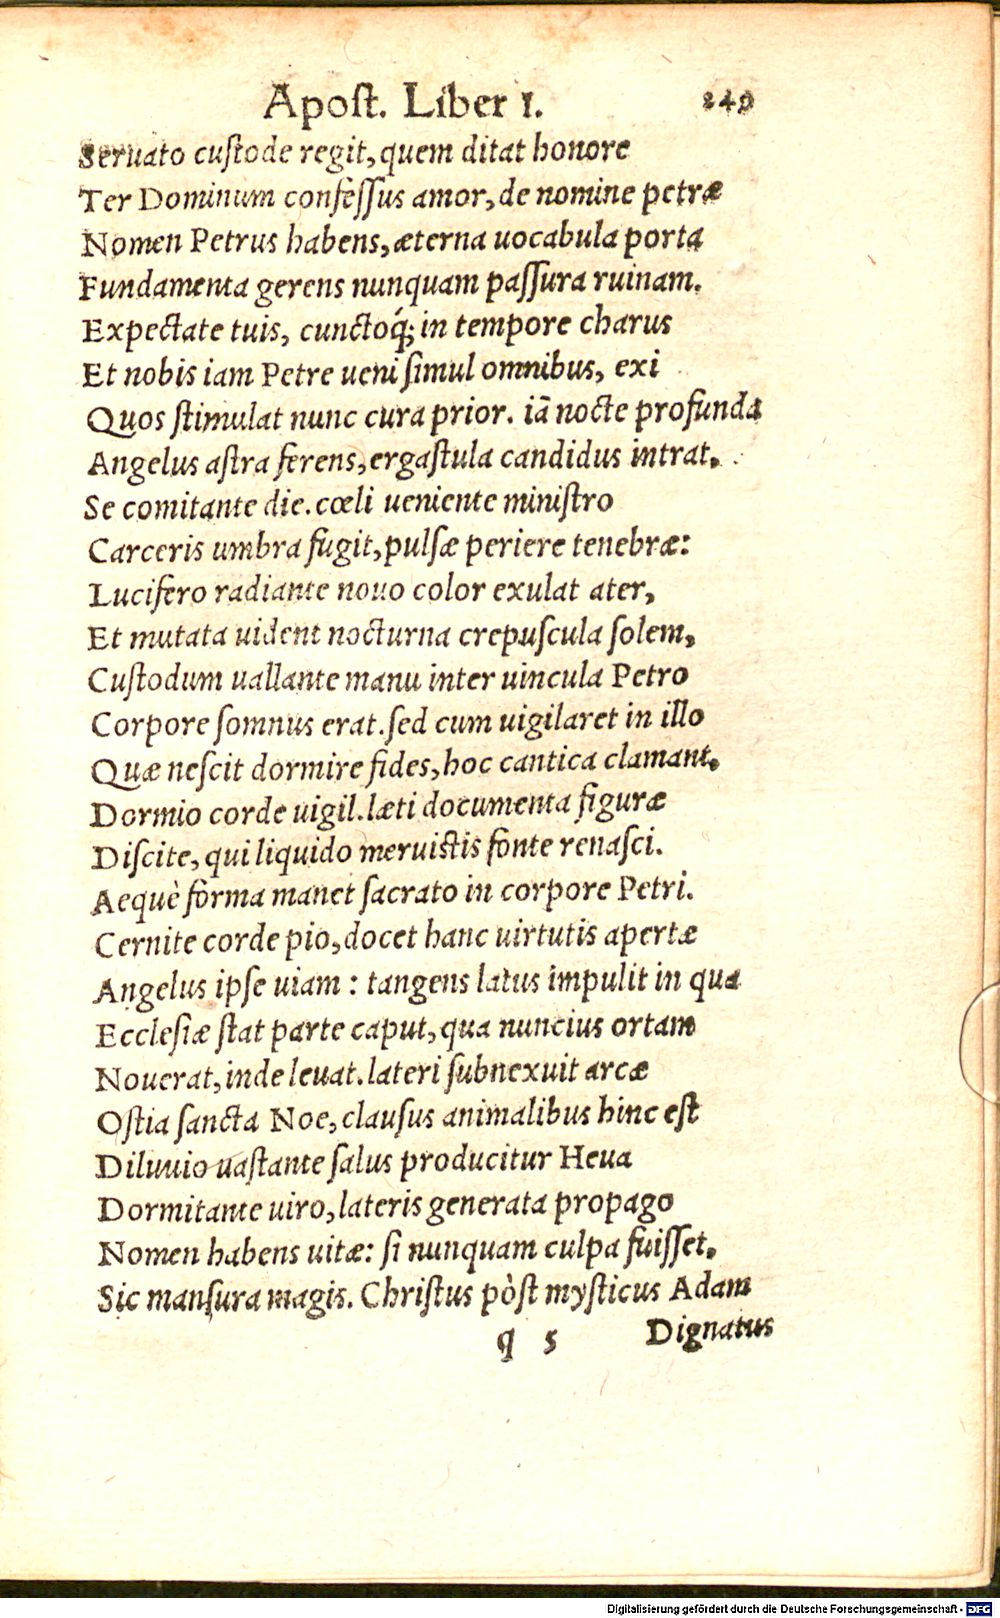 Apoſt. Liber 1. 249
Seruato cuſtode regit, quem ditat honore
Ter Dominum confeſſus amor, de nomine petræ
Nomen Petrus habens, æterna uocabula porta
Fundamenta gerens nunquam paſſura ruinam.
Expectate tuis, cunctoq́; in tempore charus
Et nobis iam Petre ueni ſimul omnibus, exi
Quos ſtimulat nunc cura prior. iā nocte profunda
Angelus aſtra ferens, ergaſtula candidus intrat.
Se comitante die. cœli ueniente miniſtro
Carceris umbra fugit, pulſæ periere tenebræ:
Lucifero radiante nouo color exulat ater,
Et mutata uident nocturna crepuſcula ſolem,
Cuſtodum uallante manu inter uincula Petro
Corpore ſomnus erat. ſed cum uigilaret in illo
Quæ neſcit dormire fides, hoc cantica clamant.
Dormio corde uigil. læti documenta figuræ
Diſcite, qui liquido meruiſtis fonte renaſci.
Aequè forma manet ſacrato in corpore Petri.
Cernite corde pio, docet hanc uirtutis apertæ
Angelus ipſe uiam : tangens latus impulit in qua
Eccleſiæ ſtat parte caput, qua nuncius ortam
Nouerat, inde leuat. lateri ſubnexuit arcæ
Oſtia ſancta Noe, clauſus animalibus hinc eſt
Diluuio uaſtante ſalus producitur Heua
Dormitante uiro, lateris generata propago
Nomen habens uitæ: ſi nunquam culpa fuiſſet.
Sic manſura magis. Chriſtus pòſt myſticus Adam
q 5 Dignatus
Digitalisierung gefördert durch die Deutsche Forschungsgemeinschaft - DFG